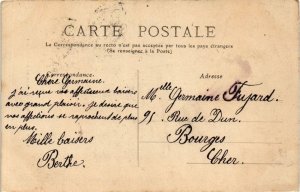 CARTE POSTALE
La Correspondance au recto n'est pas acceptée par tous les pays étrangers
(Se renseigner à la Poste)
Correspondance
Adresse
Chère Germaine.
j'ai reçue vos affectueux baisers
avec grand plaisir. je desire que
vos affections se raprochent de plus
en plus.
Mille baisers
Berthe
Melle Germaine Fujard
95 Rue de Dun.
Bourges
Cher.